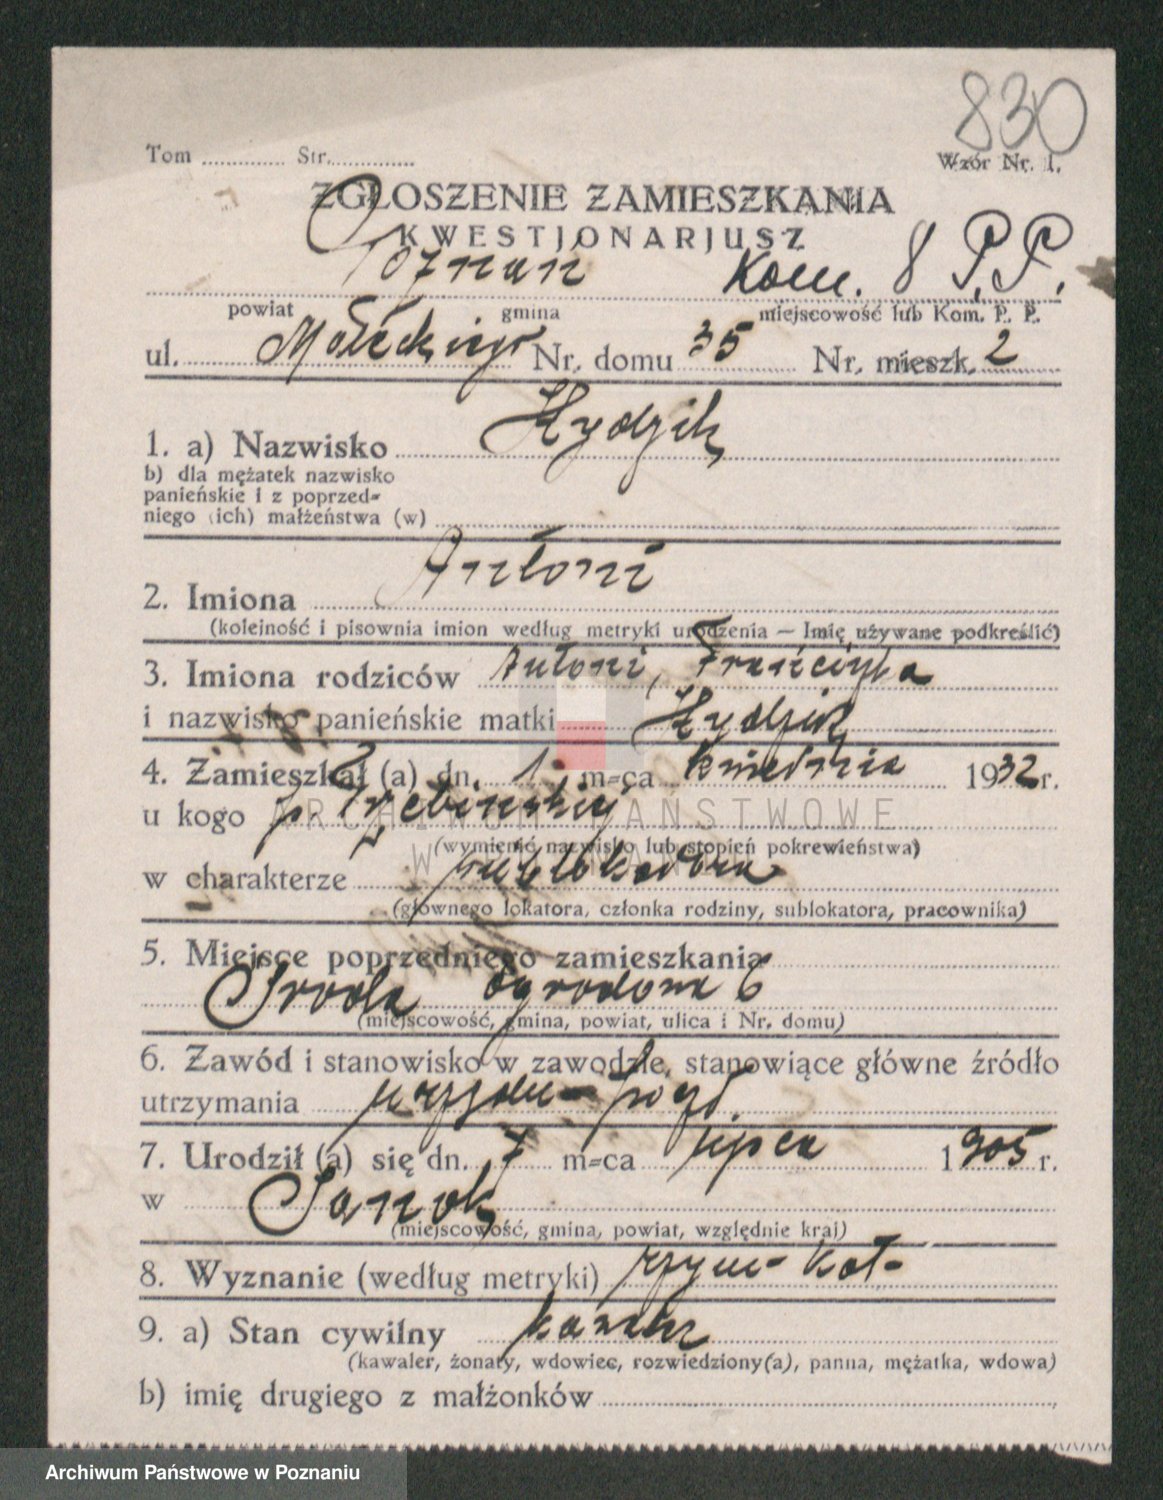 830
Tom ............ Str.............
Wzór Nr. 1.
ZGŁOSZENIE ZAMIESZKANIA
KWESTJONARJUSZ
Poznań Kom. 8 P.P.
powiat gmina miejscowość lub Kom. P. P.
ul. Małeckiego Nr. domu 35 Nr. mieszk. 2
1. a) Nazwisko Hydzik
b) dla mężatek nazwisko
panieńskie i z poprzed=
niego (ich) małżeństwa (w)
2. Imiona Antoni
(kolejność i pisownia imion według metryki urodzenia — Imię używane podkreślić)
3. Imiona rodziców Antoni, Franciszka
i nazwisko panieńskie matki Hydzik
4. Zamieszkał (a) dn. 1. m=ca kwietnia 1932 r.
u kogo p. Trzebińskiej
ARCHIWUM PAŃSTWOWE
(wymienić nazwisko lub stopień pokrewieństwa)
W POZNANIU
w charakterze sublokatora
(głównego lokatora, członka rodziny, sublokatora, pracownika)
5. Miejsce poprzedniego zamieszkania
Środa Ogrodowa 6
(miejscowość, gmina, powiat, ulica i Nr. domu)
6. Zawód i stanowisko w zawodzie, stanowiące główne źródło
utrzymania
7. Urodził (a) się dn. 7 m=ca lipca 1905 r.
w Sanok
(miejscowość, gmina, powiat, względnie kraj)
8. Wyznanie (według metryki) rzym-kat-
9. a) Stan cywilny kawaler
(kawaler, żonaty, wdowiec, rozwiedziony(a), panna, mężatka, wdowa)
b) imię drugiego z małżonków
Archiwum Państwowe w Poznaniu